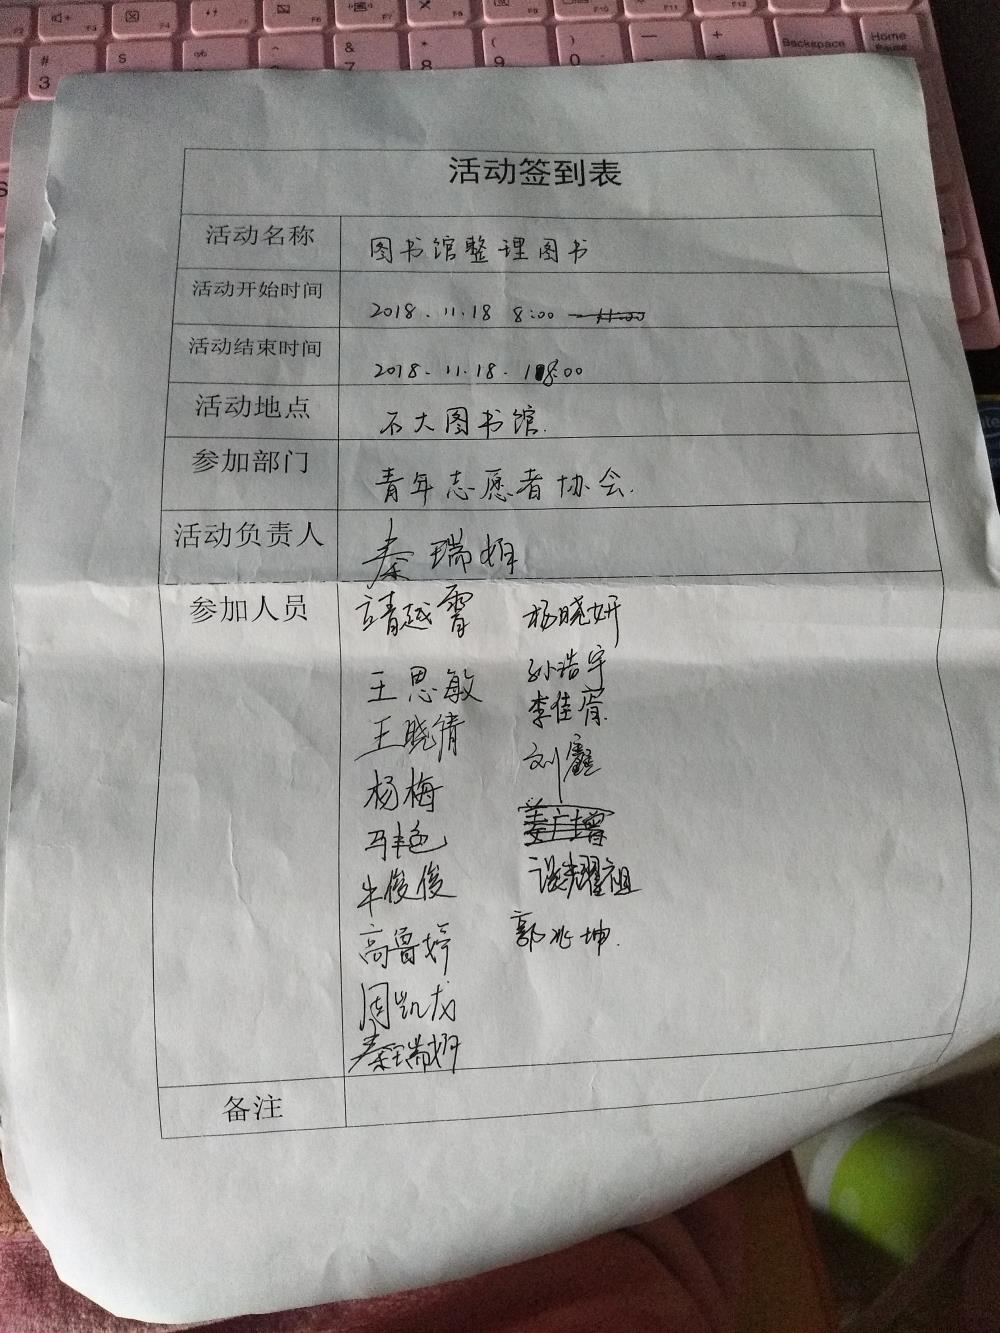 Backspace
Home
活动签到表
活动名称 图书馆整理图书
活动开始时间 2018.11.18 8:00
活动结束时间 2018.11.18. 18:00
活动地点 石大图书馆.
参加部门 青年志愿者协会.
活动负责人 秦瑞
参加人员 杨晓妍
王思敏 孙浩宇
王晓倩 李佳
杨梅 刘鑫
马艳
牛俊俊 耀祖
高鲁婷 郭兆坤.
周凯龙
秦瑞
备注